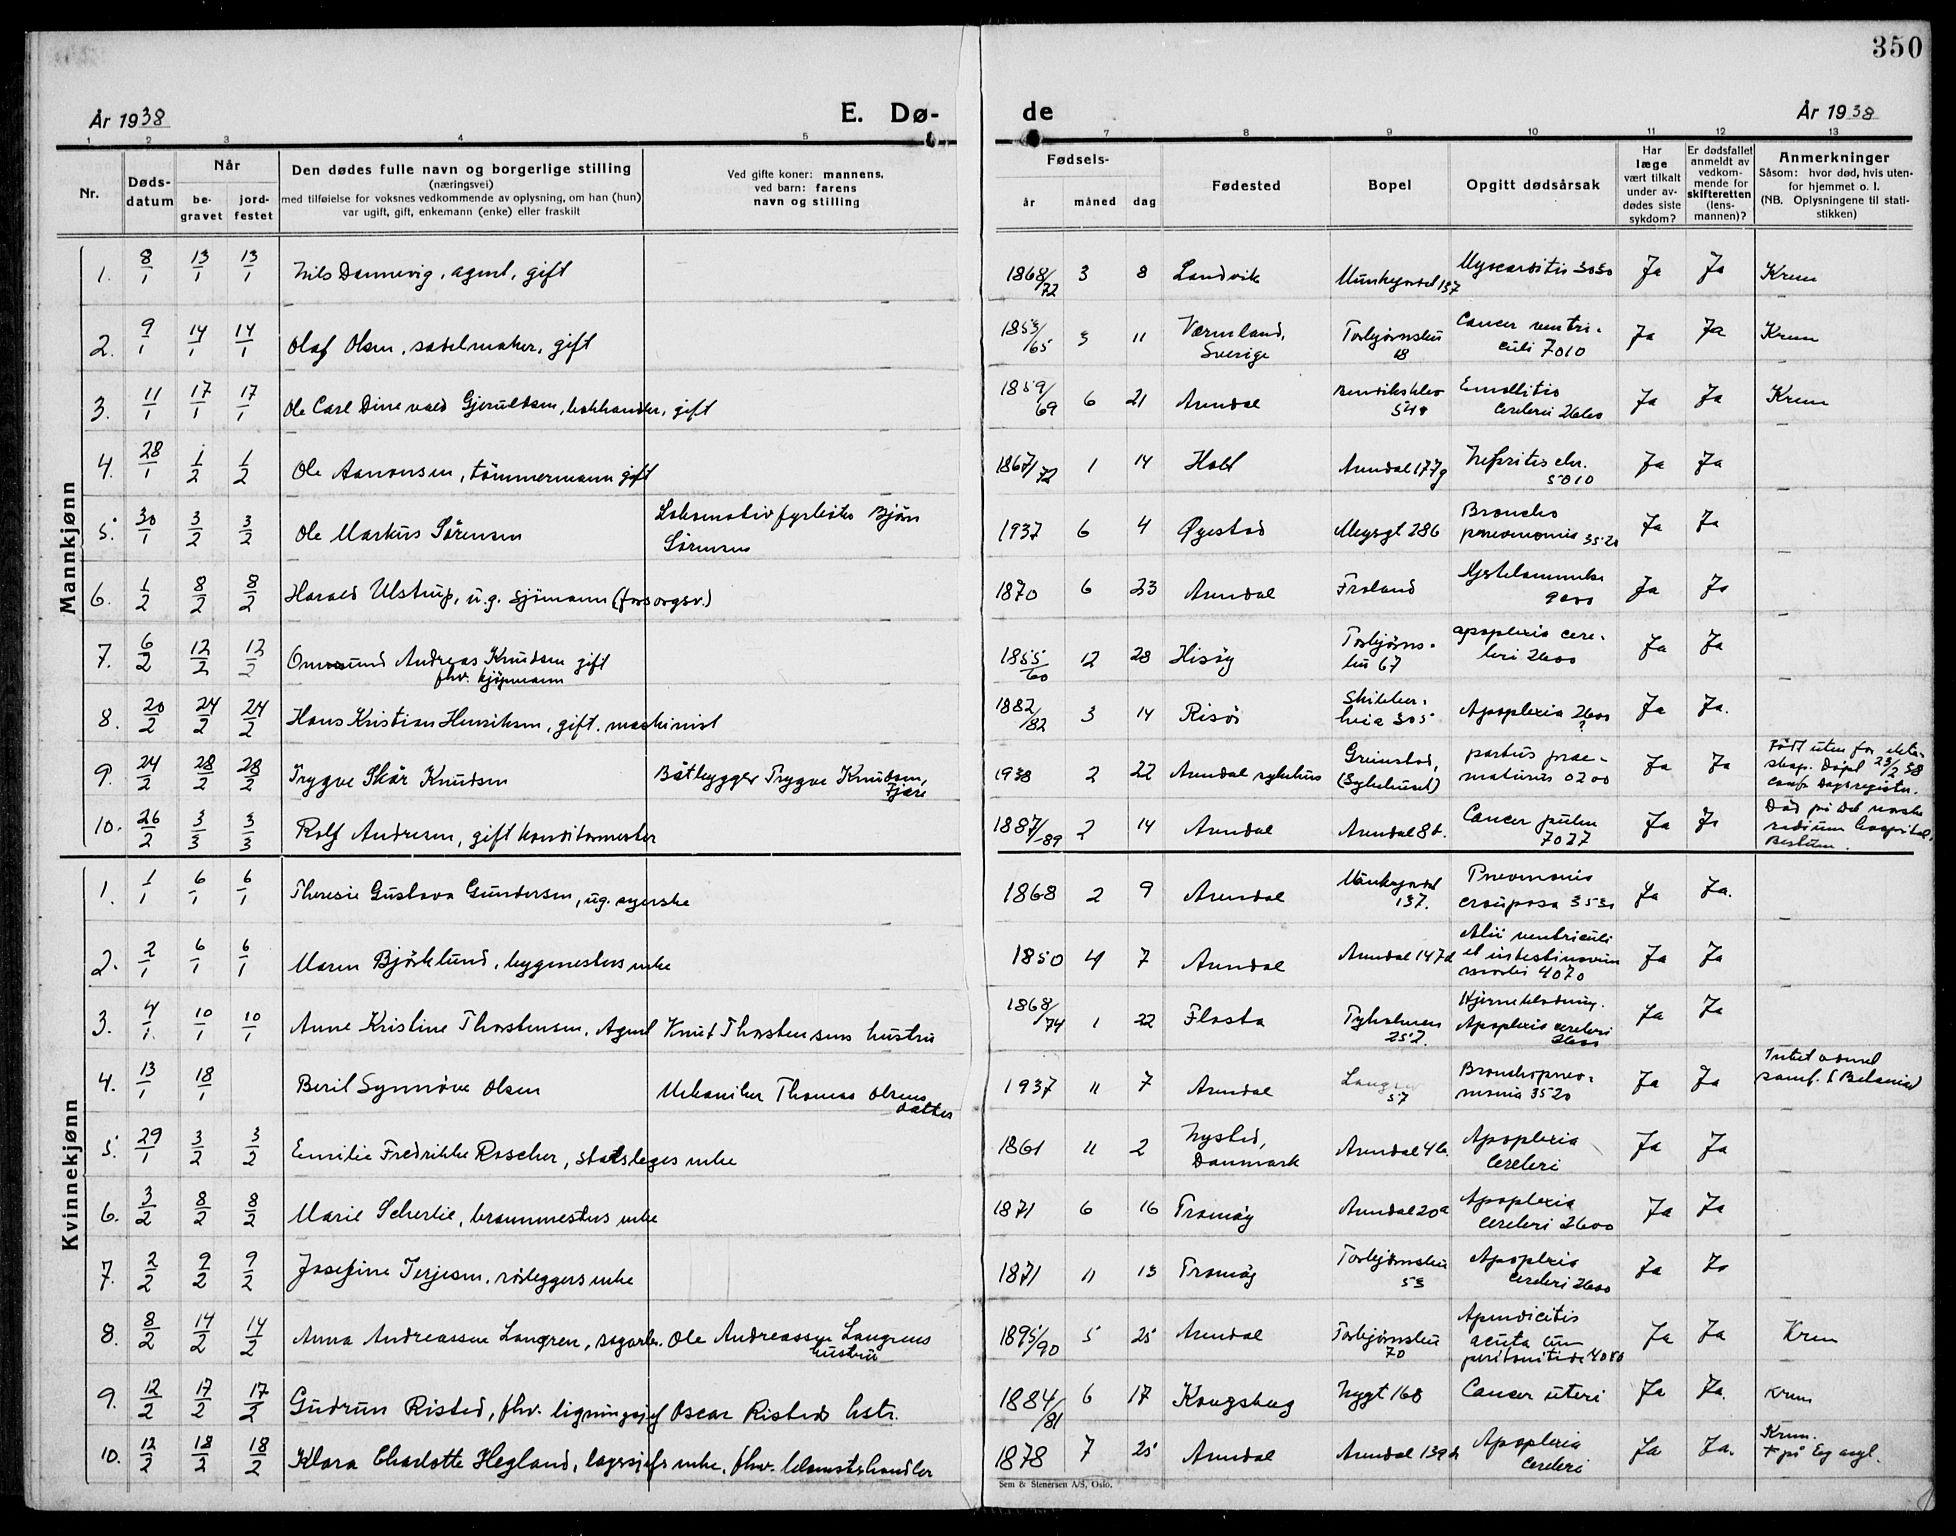 350
År 1938 E. Dø- de År 1938
1 2 3 4 5 7 8 9 10 11 12 13
Nr. Døds-datum Når be-gravet jord-festet Den dødes fulle navn og borgerlige stilling (næringsvei) med tilføielse for voksnes vedkommende av oplysning, om han (hun) var ugift, gift, enkemann (enke) eller fraskilt Ved gifte koner: mannens, ved barn: farens navn og stilling Fødsels- år måned dag Fødested Bopel Opgitt dødsårsak Har læge vært tilkalt under av-dødes siste sykdom? Er dødsfallet anmeldt av vedkom-mende for skifteretten (lens-mannen)? Anmerkninger Såsom: hvor død, hvis uten-for hjemmet o. l. (NB. Oplysningene til stati-stikken)
Mannkjønn
1. 8/1 13/1 13/1 Nils Dannevig, agent, gift 1868/72 3 8 Landvik Munkegjordet 137 Myocarditis 3030 Ja Ja Krem
2. 9/1 14/1 14/1 Olaf Olsen, sadelmaker, gift 1853/65 3 11 Værmland, Sverige Torbjørnsbu 18 Cancer ventri-culi 7010 Ja Ja Krem
3. 11/1 17/1 17/1 Ole Carl Dinevald Gjeruldsen, bokhandler, gift 1859/69 6 21 Arendal Emollitio cerebri 2600 Ja Ja Krem
4. 28/1 1/2 1/2 Ole Aanonsen, tömmermann gift 1867/72 1 14 Holt Arendal 177g Nefritis chr. 5010 Ja Ja
5. 30/1 3/2 3/2 Ole Markus Sörensen Lokomotivfyrböter Bjön Sörensen 1937 6 4 Øyestad Meyergt 286 Broncho pneumonia 3520 Ja Ja
6. 1/2 8/2 8/2 Harald Ulstrup, u.g. sjömann (forsorgsv.) 1870 6 23 Arendal Froland Hjertelammelse 9000 Ja Ja
7. 6/2 12/2 12/2 Omund Andreas Knudsen gift fhv. kjøpmann 1855/60 12 28 Hisöy Torbjørns-bu 67 apoplexia cere-bri 2600 Ja Ja
8. 20/2 24/2 24/2 Hans Kristian Henriksen, gift. maskinist 1882/82 3 14 Risör heia 305 Apoplexia 2600 ? Ja Ja.
9. 24/2 28/2 28/2 Trygve Skår Knudsen Båtbygger Trygve Knudsen, Fjære 1938 2 22 Arendal sykehus Grimstad, (Sykehuset) partus prae-maturus 0200 Ja Ja Født uten for ekte-skap. Döpt 23/2 38 Dåpsregister.
10. 26/2 3/3 3/3 Rolf Andresen, gift konditormester 1887/-89 2 14 Arendal Arendal 8b. Cancer pulm 7027 Ja Ja Död på Det norske radium hospital, Bestum.
Kvinnekjønn
1. 1/1 6/1 6/1 Theresie Gustava Gundersen, ug. syerske 1868 2 9 Arendal Munkegjordet 137. Pneumonia crouposa 3530 Ja Ja.
2. 2/1 6/1 6/1 Maren Björklund, byggmesters enke 1850 4 7 Arendal Arendal 147d Alii ventriculi et intestinorum morbi 4070 Ja Ja
3. 4/1 10/1 10/1 Anne Kristine Thorstensen, Agent Knut Thorstensens hustru 1868/74 1 22 Flosta Tyholmen 252. Hjerneblödning. Apoplexia cerebri 2600 Ja Ja
4. 13/1 18/1 Beril Synnöve Olsen Mekaniker Thomas Olsens datter 1937 11 7 Arendal 57 Bronchopneu-monia 3520 Ja Ja samf. (Betania)
5. 29/1 3/2 3/2 Emilie Fredrikke Roscher, statsleges enke 1861 11 2 Nysted, Danmark Arendal 4b. Apoplexia Cerebri Ja Ja
6. 3/2 8/2 8/2 Marie Scherlie, brannmesters enke 1871 6 16 Tromöy Arendal 20a Apoplexia cerebri 2600 Ja Ja
7. 2/2 9/2 9/2 Josefine Terjesen, rörleggers enke 1871 11 13 Tromöy Torbjørnsbu 53 Apoplexia cerebri 2600 Ja Ja
8. 8/2 14/2 14/2 Anna Andreassen Langren, sagarb. Ole Andreassen Langrens hustru 1895/90 5 25 Arendal Torbjørnsbu 70 Apendicitis acuta cum peritonitide 4080 Ja Ja Krem
9. 12/2 17/2 17/2 Gudrun Risted, fhv. ligningssjef Oscar Risteds hstr. 1884/81 6 17 Kongsberg Nygt 168 Cancer uteri Ja Ja. Krem
10. 12/2 18/2 18/2 Klara Charlotte Hegland, lagssjefs enke, fhv. blomsterhandler 1878 7 25 Arendal Arendal 139d Apoplexia cerebri Ja Ja. Krem. + på Eg asyl.
Sem & Stenersen A/S, Oslo.